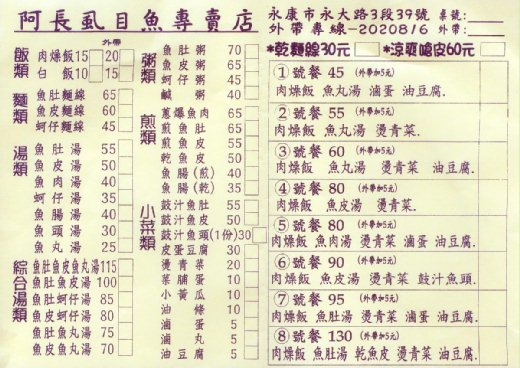 阿長虱目魚專賣店
永康市永大路3段39號 桌號:
外帶專線-2020816 外帶:
*乾麵線30元 *涼爽嗆皮60元
外帶
飯類
肉燥飯15 20
白飯10 15
麵類
魚肚麵線 65
魚皮麵線 60
蚵仔麵線 45
湯類
魚肚湯 55
魚皮湯 50
魚肉湯 40
蚵仔湯 35
魚腸湯 40
魚頭湯 30
魚丸湯 25
綜合湯類
魚肚魚皮魚丸湯115
魚肚魚皮湯 100
魚肚蚵仔湯 85
魚皮蚵仔湯 80
魚肚魚丸湯 75
魚皮魚丸湯 70
粥類
魚肚粥 70
魚皮粥 65
蚵仔粥 45
鹹粥 40
煎類
蔥爆魚肉 65
煎魚肚 65
煎魚皮 55
乾魚皮 50
魚腸(煎) 40
魚腸(乾) 35
小菜類
鼓汁魚肚 55
鼓汁魚皮 50
鼓汁魚頭(1份)30
皮蛋豆腐 30
燙青菜 20
菜脯蛋 10
小黃瓜 10
油條 10
滷蛋 5
滷丸 5
油豆腐 5
①號餐 45 (外帶加5元)
肉燥飯 魚丸湯 滷蛋 油豆腐.
②號餐 55 (外帶加5元)
肉燥飯 魚丸湯 燙青菜.
③號餐 60 (外帶加5元)
肉燥飯 魚丸湯 燙青菜 油豆腐.
④號餐 80 (外帶加5元)
肉燥飯 魚皮湯 燙青菜.
⑤號餐 80 (外帶加5元)
肉燥飯 魚肉湯 燙青菜 滷蛋 油豆腐.
⑥號餐 90 (外帶加5元)
肉燥飯 魚皮湯 燙青菜 鼓汁魚頭.
⑦號餐 95 (外帶加5元)
肉燥飯 魚肚湯 燙青菜 滷蛋 油豆腐.
⑧號餐 130 (外帶加5元)
肉燥飯 魚肚湯 乾魚皮 燙青菜 油豆腐.